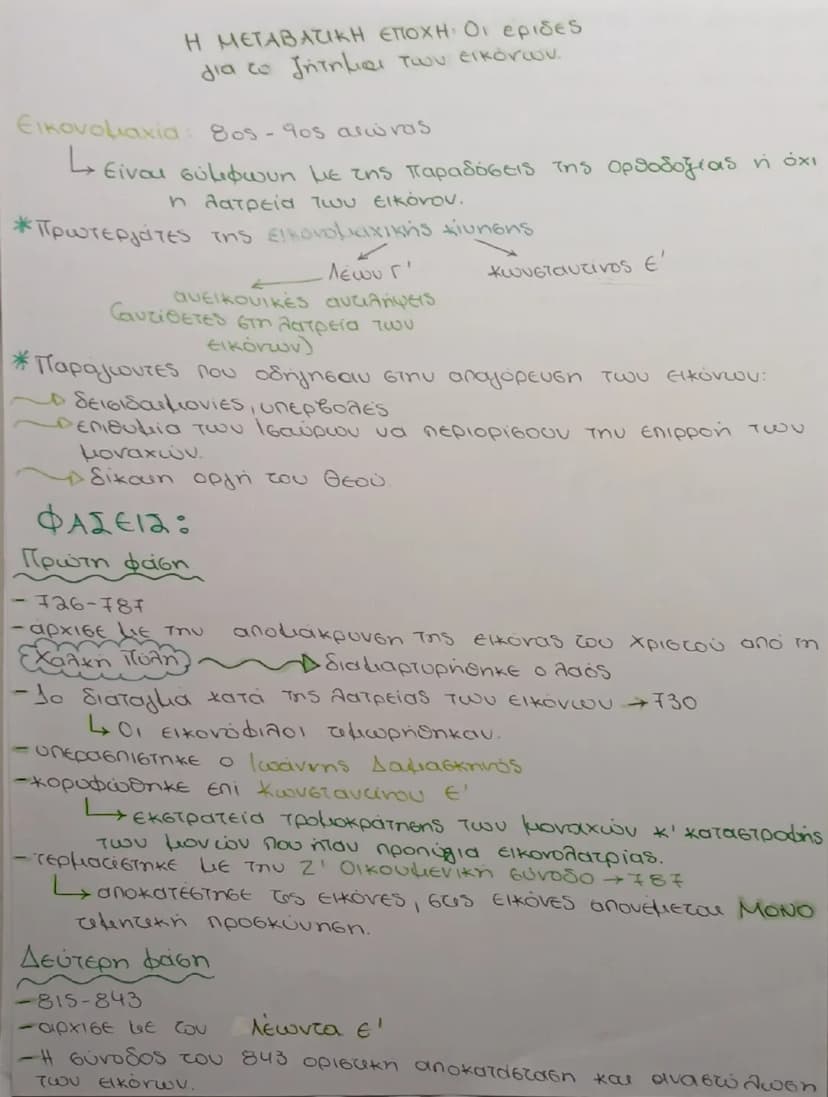 Η ΜΕΤΑΒΑΤΙΚΗ ΕΠΟΧΗ: Οι εριδες
για το ζήτημα των εικόνων.
Εικονομαχία: 8ος - 9ος αιώνας
↳ Είναι σύμφωνη με της παραδόσεις της ορθοδοξίας ή όχι
η λατρεία των εικόνον.
* Πρωτεργάτες της εικονομαχικής κίνησης
Λέων Γ' Κωνσταντίνος Ε'
ανεικονικές αντιλήψεις
(αντίθετες στη λατρεία των
εικόνων)
* Παράγοντες που οδήγησαν στην απαγόρευση των εικόνων:
δεισιδαιμονίες, υπερβολές
επιθυμία των Ισαύρων να περιορίσουν την επιρροή των
μοναχών.
δίκαιη οργή του Θεού.
ΦΑΣΕΙΣ:
Πρώτη φάση
- 726-787
- άρχισε με την απομάκρυνση της εικόνας του Χριστού από τη
Χαλκή Πύλη → διαμαρτυρήθηκε ο λαός
- 1ο διάταγμα κατά της λατρείας των εικόνων → 730
↳ Οι εικονόφιλοι τιμωρήθηκαν.
- υπερασπίστηκε ο Ιωάννης Δαμασκηνός
- κορυφώθηκε επί Κωνσταντίνου Ε'
↳ εκστρατεία τρομοκράτησης των μοναχών κ' καταστροφής
των μονών που ήταν προπύργια εικονολατρίας.
- τερματίστηκε με την Ζ' Οικουμενική σύνοδο → 787
↳ αποκατέστησε τις εικόνες, στις εικόνες απονέμεται ΜΟΝΟ
τιμητική προσκύνηση.
Δεύτερη φάση
- 815-843
- αρχισε με τον Λέωντα Ε'
- Η σύνοδος του 843 οριστική αποκατάσταση και αναστύλωση
των εικόνων.